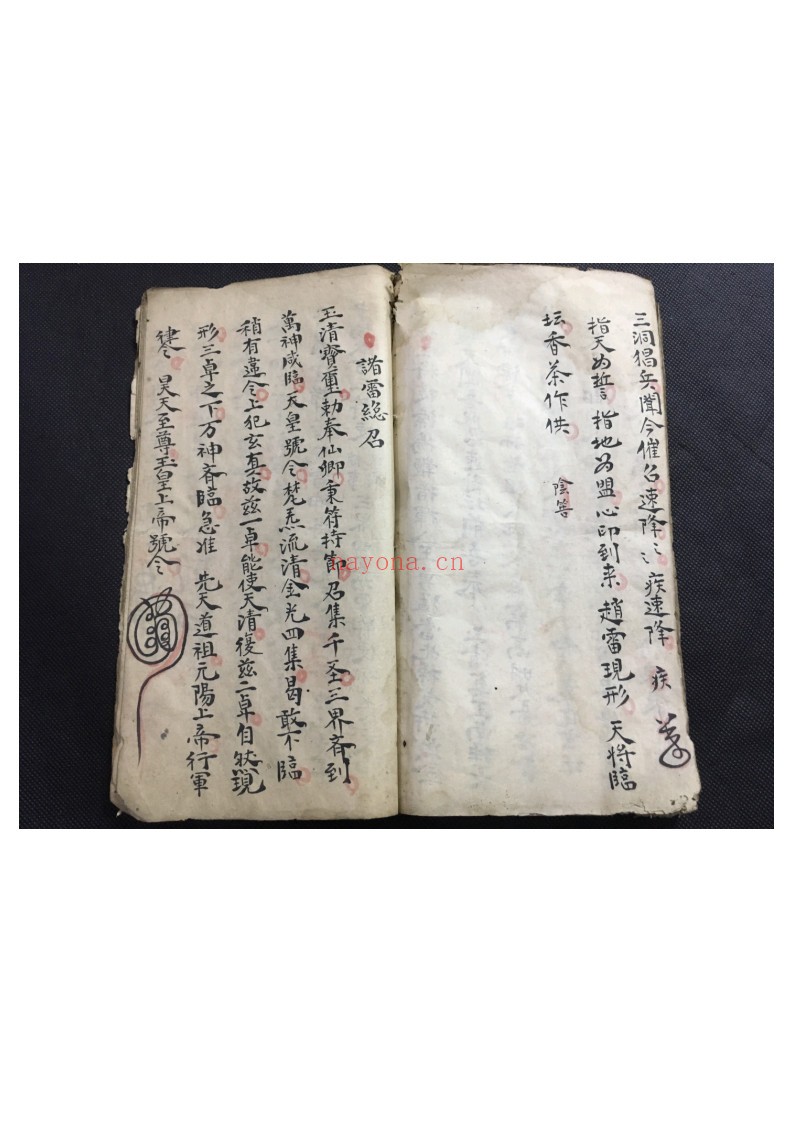 三洞猖兵聞今催召速降〻〻疾速降 疾
指天为誓指地为盟心印到来 趙雷現形 天将臨
坛香茶作供 陰筶
諸雷總召
玉清寶璽勅奉仙卿秉符持節召集千圣三界斉到
萬神咸臨天皇號令梵炁流清金光四集曷敢不臨
稍有違令上犯玄真故兹一卓能使天清復兹二卓自狀現
形三卓之下万神斉臨急准 先天道祖元陽上帝行軍
律令 昊天至尊玉皇上帝號令
nayona.cn